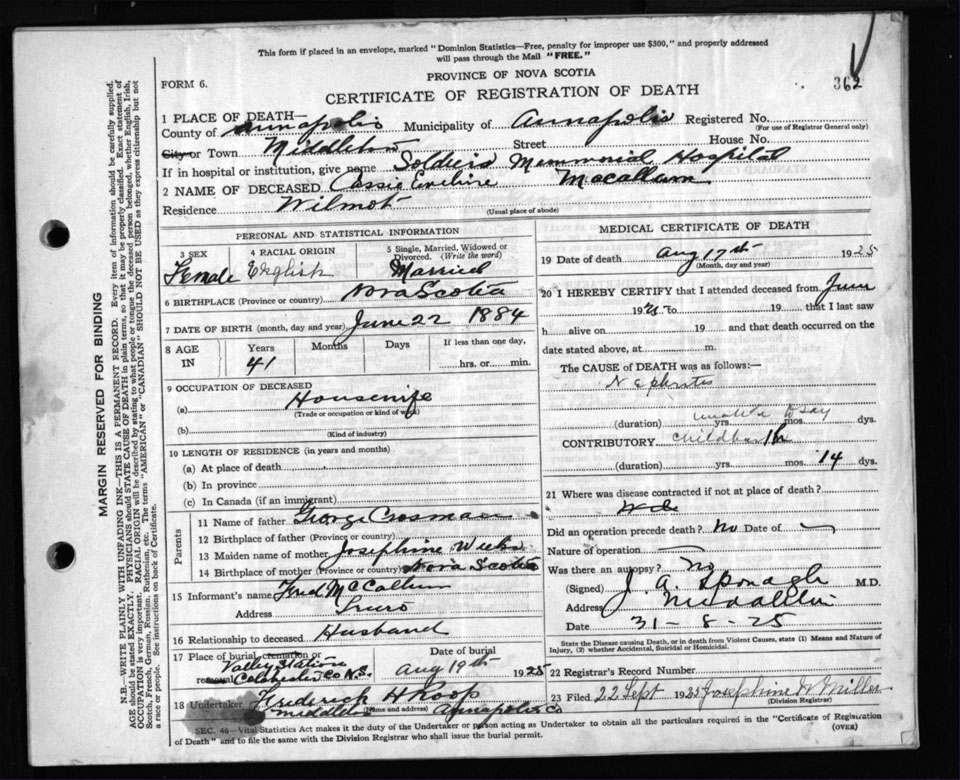 This form if placed in an envelope, marked "Dominion Statistics—Free, penalty for improper use $300," and properly addressed
will pass through the Mail "FREE."
PROVINCE OF NOVA SCOTIA
FORM 6.
362
CERTIFICATE OF REGISTRATION OF DEATH
1 PLACE OF DEATH—
County of Annapolis Municipality of Annapolis Registered No.
(For use of Registrar General only)
City or Town Middleton Street House No.
If in hospital or institution, give name Soldiers Memmorial Hospital
2 NAME OF DECEASED Cassie Macallum
Residence Wilmot
(Usual place of abode)
PERSONAL AND STATISTICAL INFORMATION
3 SEX 4 RACIAL ORIGIN 5 Single, Married, Widowed or
Divorced. (Write the word)
Female English Married
6 BIRTHPLACE (Province or country) Nova Scotia
7 DATE OF BIRTH (month, day and year) June 22 1884
8 AGE IN Years Months Days If less than one day,
41 hrs. or min.
9 OCCUPATION OF DECEASED
(a) Housewife
(Trade or occupation or kind of work)
(b)
(Kind of industry)
10 LENGTH OF RESIDENCE (in years and months)
(a) At place of death
(b) In province
(c) In Canada (if an immigrant)
Parents
11 Name of father George Crosman
12 Birthplace of father (Province or country)
13 Maiden name of mother Josephine Weeks
14 Birthplace of mother (Province or country) Nova Scotia
15 Informant's name Fred McCallum
Address Truro
16 Relationship to deceased Husband
17 Place of burial, cremation or removal Date of burial
Valley Station
Colchester Co N.S. Aug 19th 1925
18 Undertaker Frederick H Roop
(Name and address)
Middleton Annapolis Co
MEDICAL CERTIFICATE OF DEATH
19 Date of death Aug 17th 1925
(Month, day and year)
20 I HEREBY CERTIFY that I attended deceased from June
19 25 to 19 that I last saw
h alive on 19 and that death occurred on the
date stated above, at m.
The CAUSE of DEATH was as follows:—
Nephritis
unable to say
(duration) yrs. mos. dys.
CONTRIBUTORY childbirth
(duration) yrs. mos. 14 dys.
21 Where was disease contracted if not at place of death?
Did an operation precede death? No Date of
Nature of operation
Was there an autopsy? No
(Signed) J. A. Sponagle M.D.
Address Middleton
Date 31-8-25
State the Disease causing Death, or in death from Violent Causes, state (1) Means and Nature of
Injury, (2) whether Accidental, Suicidal or Homicidal.
22 Registrar's Record Number
23 Filed 22 Sept 1925 Josephine W Miller
(Division Registrar)
SEC. 46—Vital Statistics Act makes it the duty of the Undertaker or person acting as Undertaker to obtain all the particulars required in the "Certificate of Registration
of Death" and to file the same with the Division Registrar who shall issue the burial permit. (OVER)
MARGIN RESERVED FOR BINDING
N.B.—WRITE PLAINLY WITH UNFADING INK—THIS IS A PERMANENT RECORD. Every item of information should be carefully supplied.
AGE should be stated EXACTLY. PHYSICIANS should STATE CAUSE OF DEATH in plain terms, so that it may be properly classified. Exact statement of
OCCUPATION is very important. RACIAL ORIGIN will be described by stating to what people or tongue the deceased person belonged, whether English, Irish,
Scotch, French, German, Russian, Ruthenian, etc. The terms "AMERICAN" or "CANADIAN" SHOULD NOT BE USED as they express citizenship but not
a race or people. See instructions on back of Certificate.